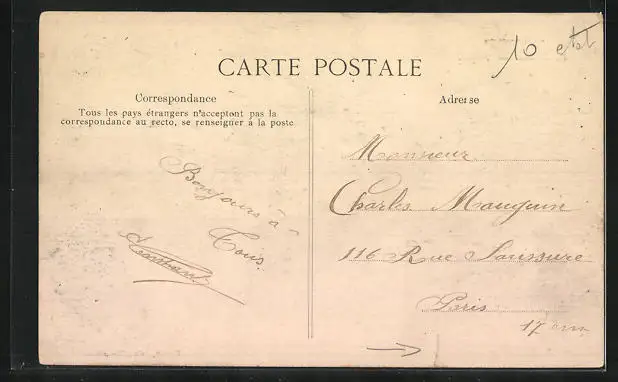 10 etat
CARTE POSTALE
Correspondance
Tous les pays étrangers n'acceptent pas la
correspondance au recto, se renseigner à la poste
Bonjours à
Tous.
Adresse
Monsieur
Charles Mauguin
116 Rue Saussure
Paris
17 em